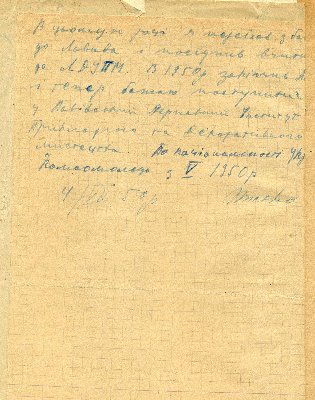 В цьому році я переїхав з ба
до Львова і поступив вчити
до ЛДУПМ. В 1950р закінчив
і тепер бажаю поступити
у Львівський Державний Інститут
Прикладного та Декоративного
мистецтва. По національності Укр
Комсомолець з V 1950р
50р